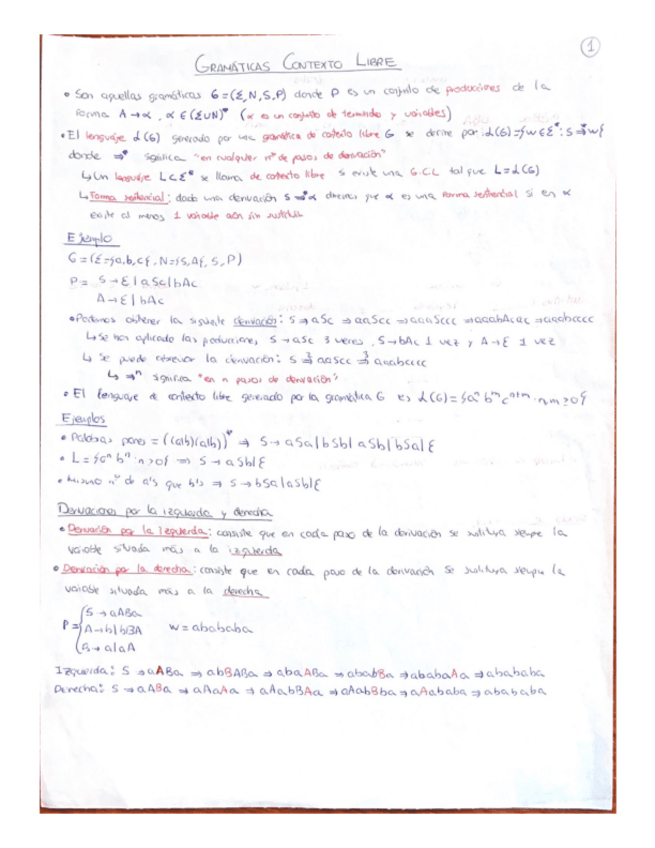 1
GRAMÁTICAS CONTEXTO LIBRE
• Son aquellas gramáticas G=(Σ,N,S,P) donde P es un conjunto de producciones de la
forma A→α, α∈(Σ∪N)* (α es un conjunto de terminales y variables)
• El lenguaje L(G) generado por una gramática de contexto libre G se define por: L(G)={w∈Σ*: S⇒*w}
donde ⇒* significa "en cualquier nº de pasos de derivación"
↳ Un lenguaje L⊂Σ* se llama de contexto libre si existe una G.C.L tal que L=L(G)
↳ Forma sentencial: dada una derivación S⇒*α diremos que α es una forma sentencial si en α
existe al menos 1 variable aún sin sustituir
Ejemplo
G=(Σ={a,b,c}, N={S,A}, S, P)
P= S→ε|aSc|bAc
A→ε|bAc
• Podemos obtener la siguiente derivación: S⇒aSc⇒aaScc⇒aaaSccc⇒aaabAcccc⇒aaabcccc
↳ Se han aplicado las producciones, S→aSc 3 veces, S→bAc 1 vez y A→ε 1 vez
↳ Se puede abreviar la derivación: S ⇒ aaScc ⇒ aaabcccc
↳ ⇒ⁿ significa "en n pasos de derivación"
• El lenguaje de contexto libre generado por la gramática G es L(G)={aⁿbᵐcⁿ⁺ᵐ: n,m≥0}
Ejemplos
• Palabras pares = ((a|b)(a|b))* ⇒ S→aSa|bSb|aSb|bSa|ε
• L={aⁿbⁿ: n>0} ⇒ S→aSb|ε
• Mismo nº de a's que b's ⇒ S→bSa|aSb|ε
Derivaciones por la izquierda y derecha
• Derivación por la izquierda: consiste que en cada paso de la derivación se sustituya siempre la
variable situada más a la izquierda
• Derivación por la derecha: consiste que en cada paso de la derivación se sustituya siempre la
variable situada más a la derecha
S→aABa
P= A→b|bBA w=abababa
B→a|aA
Izquierda: S⇒aABa⇒abBABa⇒abaABa⇒ababBa⇒ababaAa⇒abababa
Derecha: S⇒aABa⇒aAaAa⇒aAabBAa⇒aAabBba⇒aAababa⇒abababa